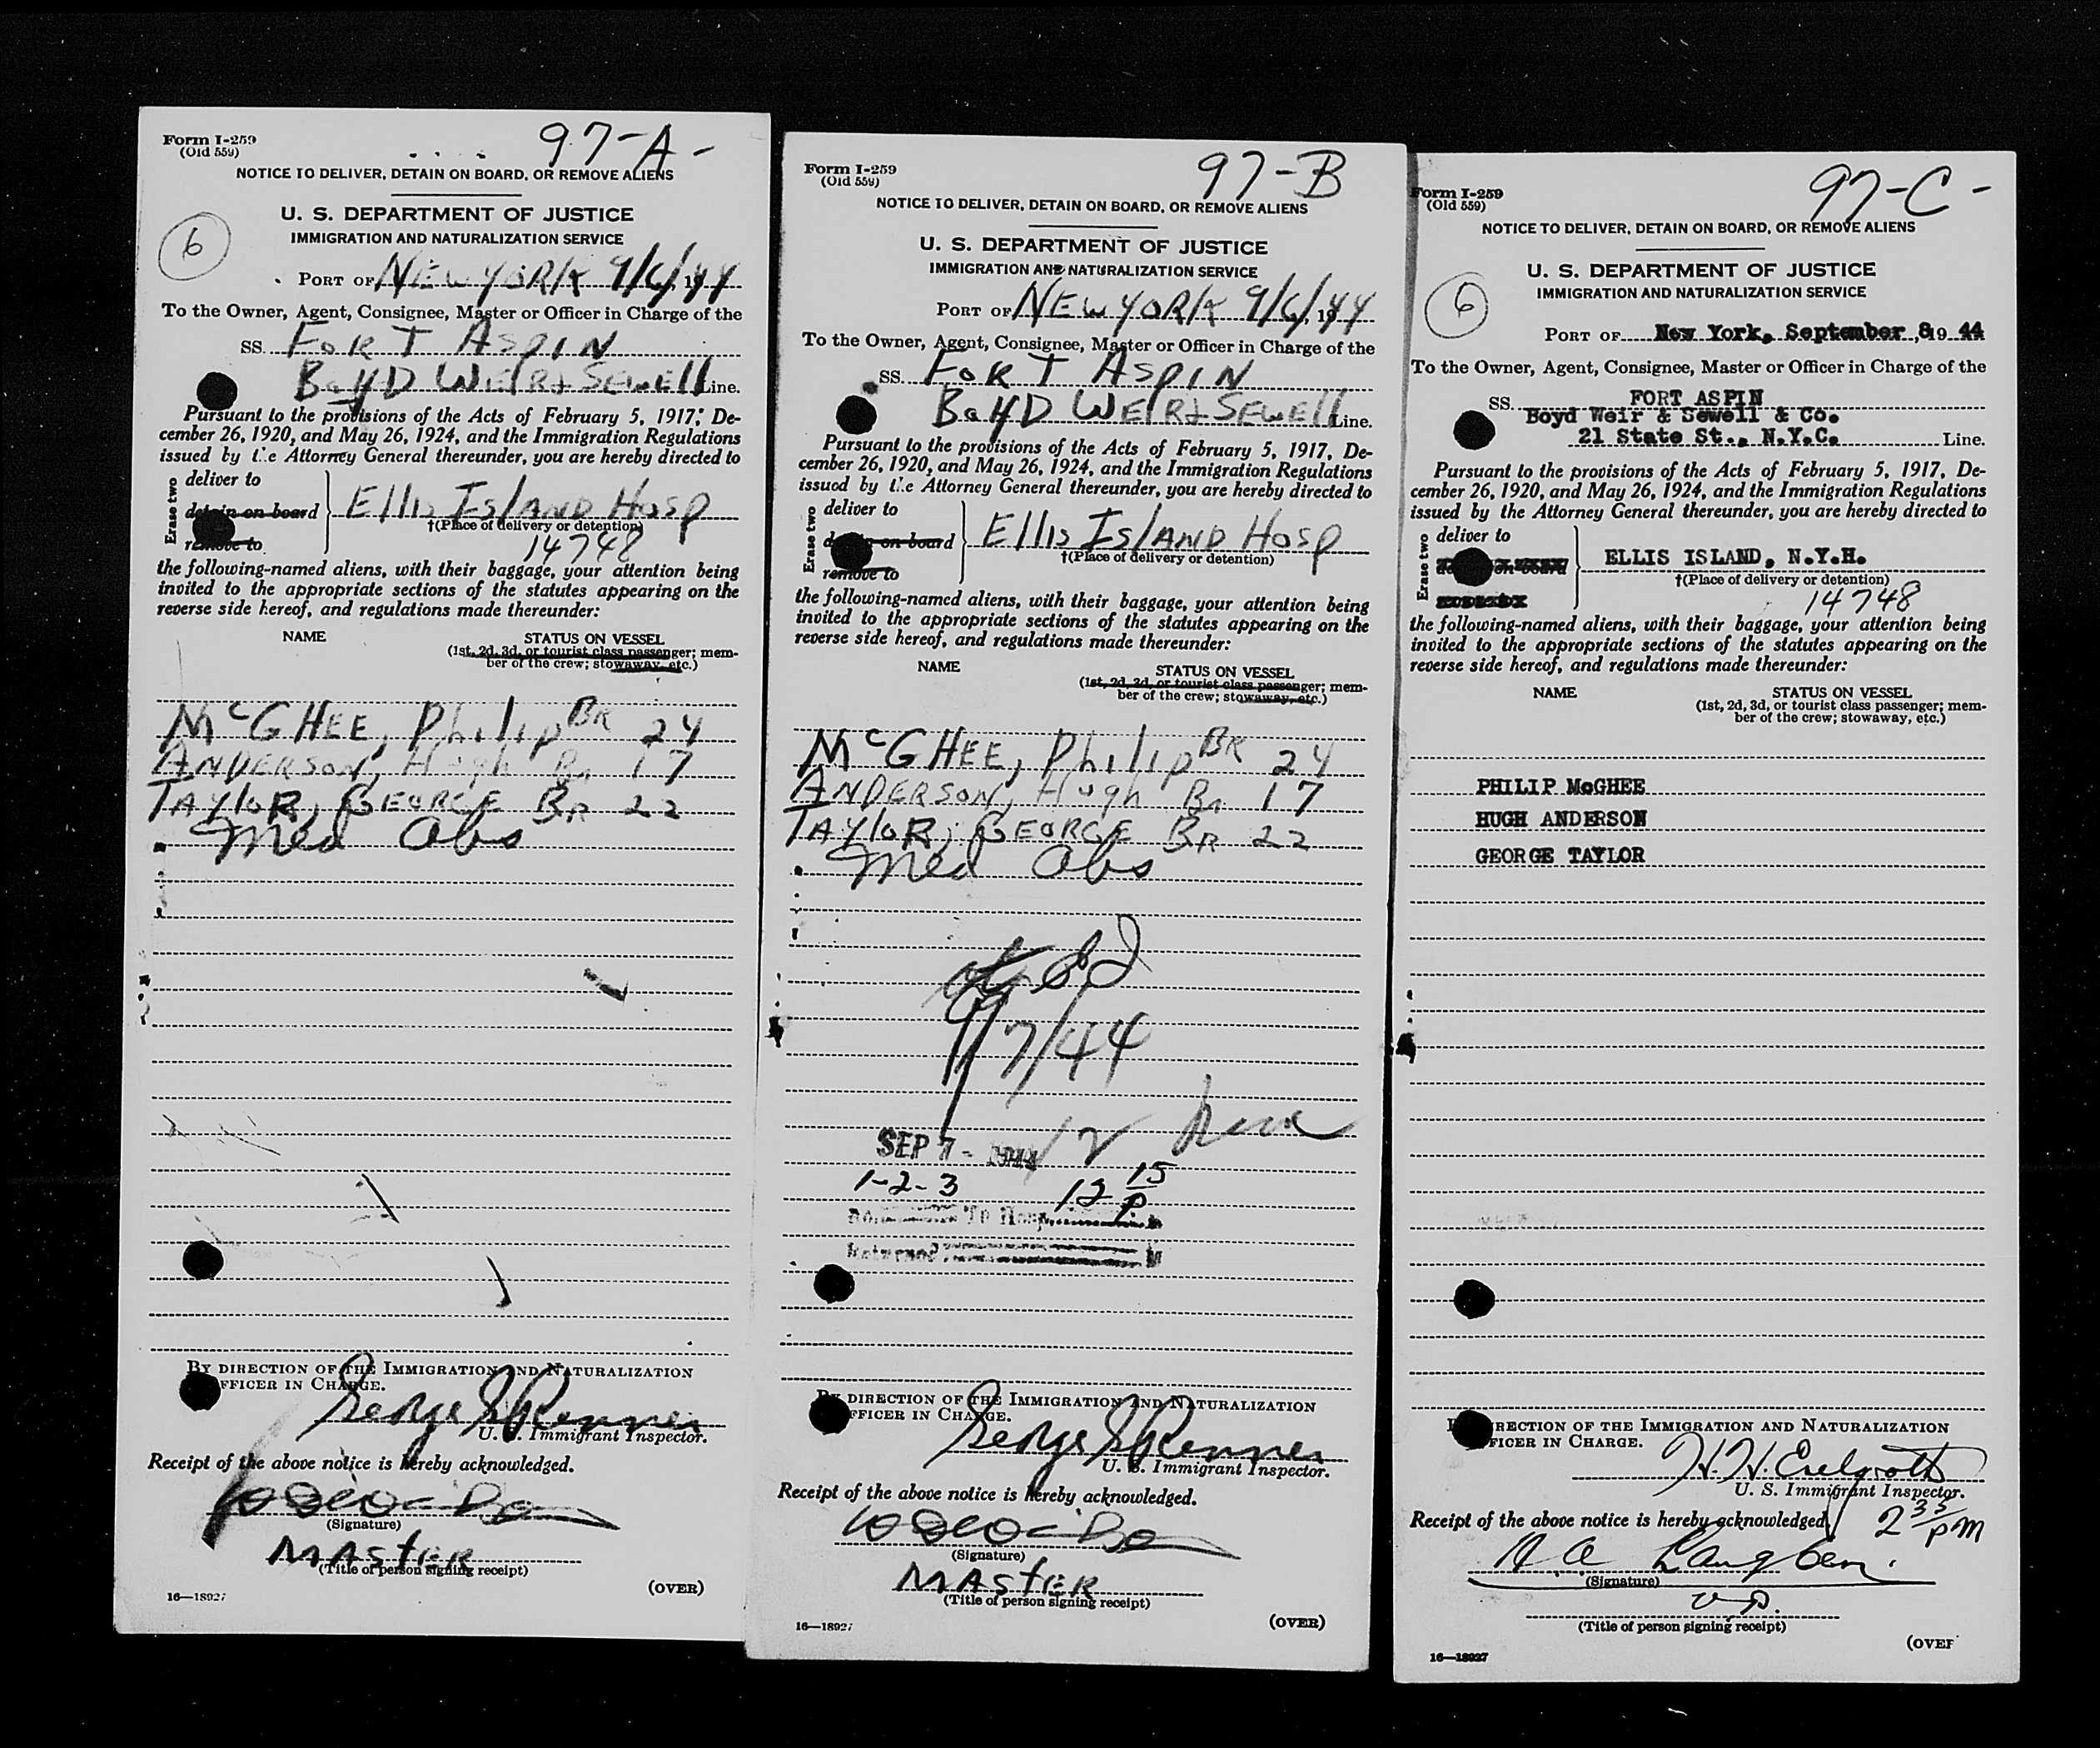 Form I-259
(Old 559)
97-A-
NOTICE TO DELIVER, DETAIN ON BOARD, OR REMOVE ALIENS
U. S. DEPARTMENT OF JUSTICE
6
IMMIGRATION AND NATURALIZATION SERVICE
PORT OF NEW YORK 9/6/, 1944
To the Owner, Agent, Consignee, Master or Officer in Charge of the
SS. FORT ASPIN
BOYD WEIR & SEWELL Line.
Pursuant to the provisions of the Acts of February 5, 1917, De-
cember 26, 1920, and May 26, 1924, and the Immigration Regulations
issued by the Attorney General thereunder, you are hereby directed to
Erase two
deliver to
detain on board
remove to
Ellis Island Hosp
†(Place of delivery or detention)
14748
the following-named aliens, with their baggage, your attention being
invited to the appropriate sections of the statutes appearing on the
reverse side hereof, and regulations made thereunder:
NAME STATUS ON VESSEL
(1st, 2d, 3d, or tourist class passenger; mem-
ber of the crew; stowaway, etc.)
McGHEE, Philip BR 24
ANDERSON, Hugh Br 17
TAYLOR, GEORGE BR 22
Med Obs
BY DIRECTION OF THE IMMIGRATION AND NATURALIZATION
OFFICER IN CHARGE.
George S Renner
U. S. Immigrant Inspector.
Receipt of the above notice is hereby acknowledged.
(Signature)
MASTER
(Title of person signing receipt)
16—18927
(OVER)
Form I-259
(Old 559)
97-B
NOTICE TO DELIVER, DETAIN ON BOARD, OR REMOVE ALIENS
U. S. DEPARTMENT OF JUSTICE
IMMIGRATION AND NATURALIZATION SERVICE
PORT OF NEW YORK 9/6/, 1944
To the Owner, Agent, Consignee, Master or Officer in Charge of the
SS. FORT ASPIN
BOYD WEIR & SEWELL Line.
Pursuant to the provisions of the Acts of February 5, 1917, De-
cember 26, 1920, and May 26, 1924, and the Immigration Regulations
issued by the Attorney General thereunder, you are hereby directed to
Erase two
deliver to
detain on board
remove to
Ellis Island Hosp
†(Place of delivery or detention)
the following-named aliens, with their baggage, your attention being
invited to the appropriate sections of the statutes appearing on the
reverse side hereof, and regulations made thereunder:
NAME STATUS ON VESSEL
(1st, 2d, 3d, or tourist class passenger; mem-
ber of the crew; stowaway, etc.)
McGHEE, Philip BR 24
ANDERSON, Hugh Br 17
TAYLOR, GEORGE BR 22
Med Obs
9/7/44
SEP 7 - 1944
1-2-3 12 15 P
To Hosp
Returned
BY DIRECTION OF THE IMMIGRATION AND NATURALIZATION
OFFICER IN CHARGE.
George S Renner
U. S. Immigrant Inspector.
Receipt of the above notice is hereby acknowledged.
(Signature)
MASTER
(Title of person signing receipt)
16—18927
(OVER)
Form I-259
(Old 559)
97-C-
NOTICE TO DELIVER, DETAIN ON BOARD, OR REMOVE ALIENS
U. S. DEPARTMENT OF JUSTICE
6
IMMIGRATION AND NATURALIZATION SERVICE
PORT OF New York, September ,819 44
To the Owner, Agent, Consignee, Master or Officer in Charge of the
SS. FORT ASPIN
Boyd Weir & Sewell & Co.
21 State St., N.Y.C. Line.
Pursuant to the provisions of the Acts of February 5, 1917, De-
cember 26, 1920, and May 26, 1924, and the Immigration Regulations
issued by the Attorney General thereunder, you are hereby directed to
Erase two
deliver to
on board
ELLIS ISLAND, N.Y.H.
†(Place of delivery or detention)
14748
the following-named aliens, with their baggage, your attention being
invited to the appropriate sections of the statutes appearing on the
reverse side hereof, and regulations made thereunder:
NAME STATUS ON VESSEL
(1st, 2d, 3d, or tourist class passenger; mem-
ber of the crew; stowaway, etc.)
PHILIP McGHEE
HUGH ANDERSON
GEORGE TAYLOR
BY DIRECTION OF THE IMMIGRATION AND NATURALIZATION
OFFICER IN CHARGE.
U. S. Immigrant Inspector.
Receipt of the above notice is hereby acknowledged.
2 35 PM
(Signature)
(Title of person signing receipt)
16—18927
(OVER